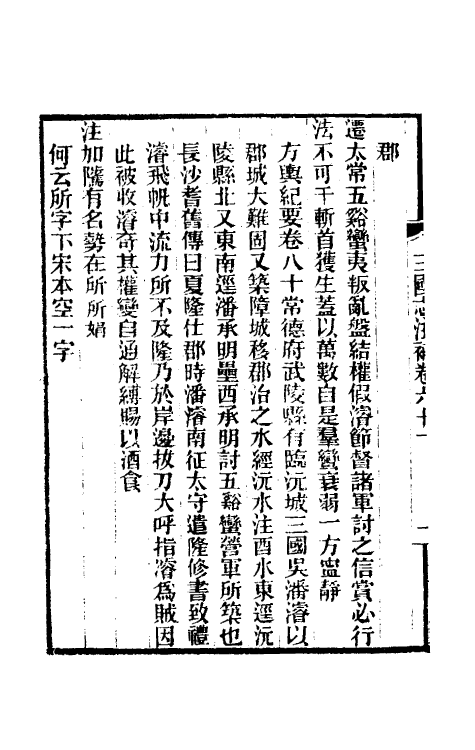 三國志注補卷六十一
郡
遷太常五谿蠻夷叛亂盤結權假濬節督諸軍討之信賞必行
法不可干斬首獲生蓋以萬數自是羣蠻衰弱一方寍靜
方輿紀要卷八十常德府武陵縣有臨沅城三國吳潘濬以
郡城大難固又築障城移郡治之水經沅水注酉水東逕沅
陵縣北又東南逕潘承明壘西承明討五谿蠻營軍所築也
長沙耆舊傳曰夏隆仕郡時潘濬南征太守遣隆修書致禮
濬飛帆中流力所不及隆乃於岸邊拔刀大呼指濬爲賊因
此被收濬奇其權變自通解縛賜以酒食
注加隲有名勢在所所媚
何云所字下宋本空一字